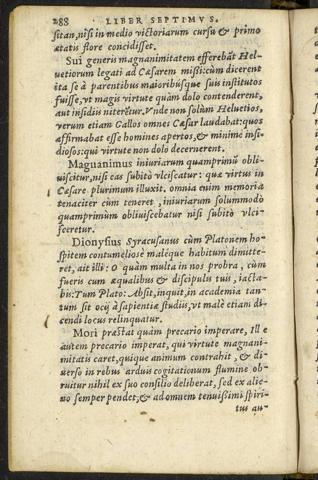 288 LIBER SEPTIMVS.
sitan, nisi in medio victoriarum cursu & primo
ætatis flore concidisset.
Sui generis magnanimitatem efferebãt Hel-
uetiorum legati ad Cæsarem missi: cùm dicerent
ita se à parentibus maioribúsque suis institutos
fuisse, vt magis virtute quàm dolo contenderent,
aut insidiis niterẽtur. Vnde non solùm Heluetios,
verum etiam Gallos omneis Cæsar laudabat: quos
affirmabat esse homines apertos, & minimè insi-
diosos: qui virtute non dolo decernerent.
Magnanimus iniuriarum quamprimũ obli-
uiscitur, nisi eas subitò vlciscatur: quæ virtus in
Cæsare plurimum illuxit. omnia enim memoria
tenaciter cùm teneret, iniuriarum solummodò
quamprimùm obliuiscebatur nisi subitò vlci-
sceretur.
Dionysius Syracusanus cùm Platonem ho-
spitem contumeliosè malèque habitum dimitte-
ret, ait illi: O quàm multa in nos probra, cùm
fueris cum æqualibus & discipulis tuis, iacta-
bis: Tum Plato: Absit, inquit, in academia tan-
tum sit ocij à sapientiæ studiis, vt malè etiam di-
cendi locus relinquatur.
Mori præstat quàm precario imperare, Ill e
autem precario imperat, qui virtute magnani-
mitatis caret, quique animum contrahit, & di-
uerso in rebus arduis cogitationum flumine ob-
ruitur nihil ex suo consilio deliberat, sed ex alie-
no semper pendet, & ad omnem tenuissimi spiri-
tus au-